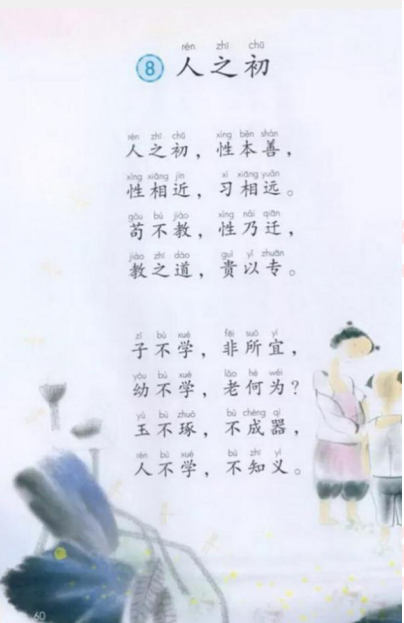 rén zhī chū
8 人之初
rén zhī chū xìng běn shàn
人之初，性本善，
xìng xiāng jìn xí xiāng yuǎn
性相近，习相远。
gǒu bú jiào xìng nǎi qiān
苟不教，性乃迁，
jiào zhī dào guì yǐ zhuān
教之道，贵以专。
zǐ bù xué fēi suǒ yí
子不学，非所宜，
yòu bù xué lǎo hé wéi
幼不学，老何为？
yù bù zhuó bù chéng qì
玉不琢，不成器，
rén bù xué bù zhī yì
人不学，不知义。
60